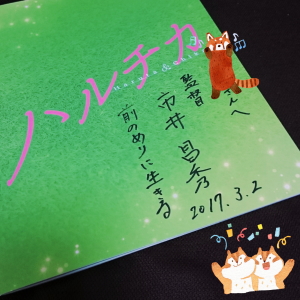 ハルチカ
さんへ
監督
市井昌秀
前のめりに生きる
2017.3.2